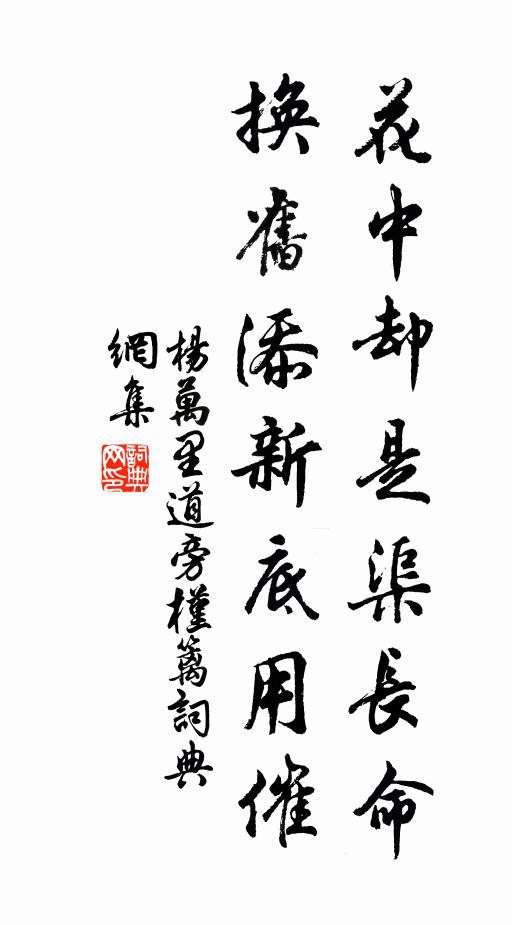 花中却是渠長命
換舊添新底用催
楊萬里道旁槿篱詞典
網集
詞典
网印